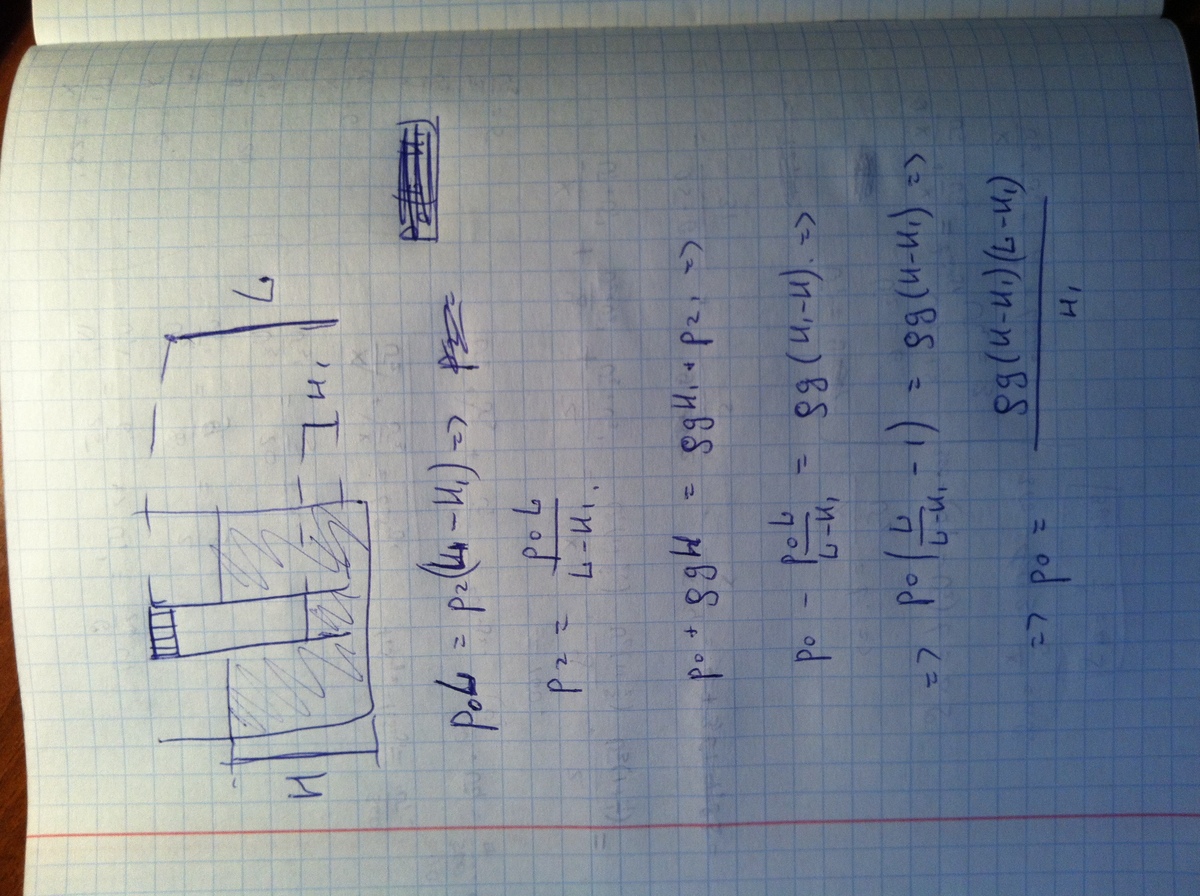 H
H₁
L
p₀L = p₂(L - H₁) =>
p₂ = p₀L / (L - H₁)
p₀ + ρgH = ρgH₁ + p₂, =>
p₀ - p₀L / (L - H₁) = ρg(H₁ - H) =>
=> p₀(L / (L - H₁) - 1) = ρg(H - H₁) =>
=> p₀ = ρg(H - H₁)(L - H₁) / H₁